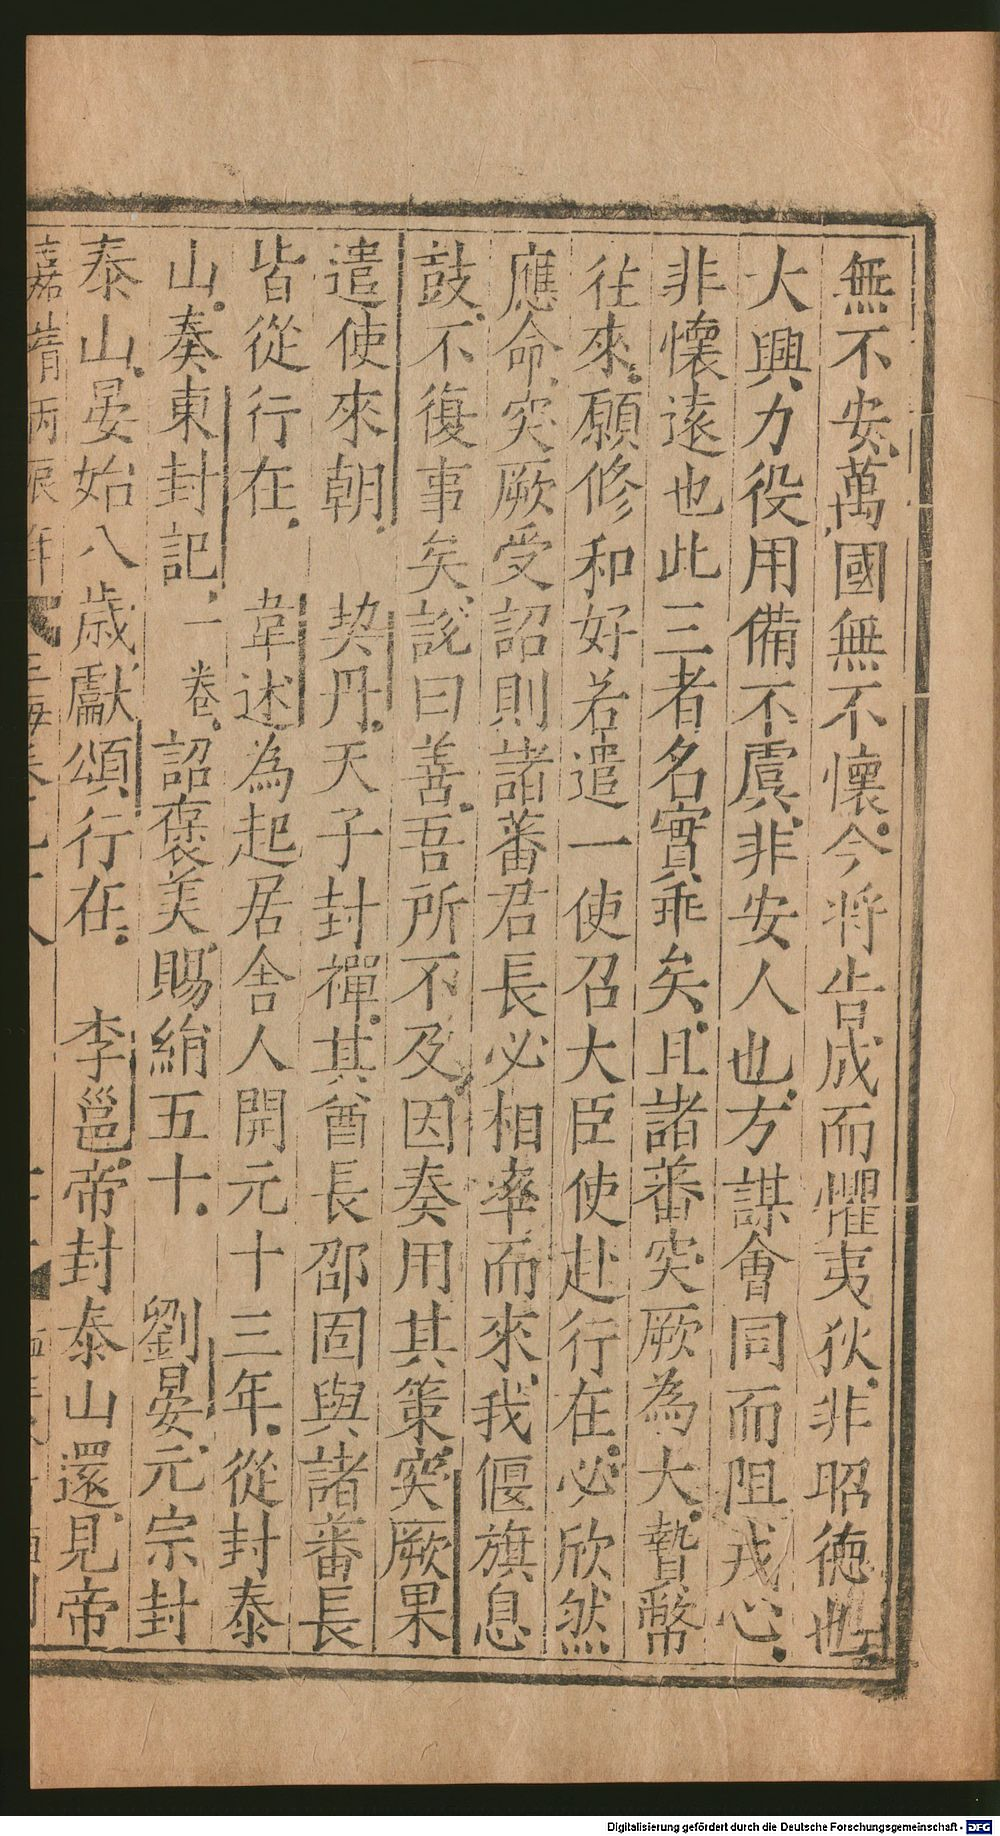 無不安萬國無不懷今將告成而懼夷狄非昭德也
大興力役用備不虞非安人也方謀會同而阻戎心
非懷遠也此三者名實乖矣且諸蕃突厥為大贄幣
往來願修和好若遣一使召大臣使赴行在必欣然
應命突厥受詔則諸蕃君長必相率而來我偃旗息
鼓不復事矣說曰善吾所不及因奏用其策突厥果
遣使來朝 契丹天子封禪其酋長邵固與諸蕃長
皆從行在 韋述為起居舍人開元十三年從封泰
山奏東封記一卷詔褒美賜絹五十 劉晏元宗封
泰山晏始八歲獻頌行在 李邕帝封泰山還見帝
嘉靖丙辰年
Digitalisierung gefördert durch die Deutsche Forschungsgemeinschaft - DFG